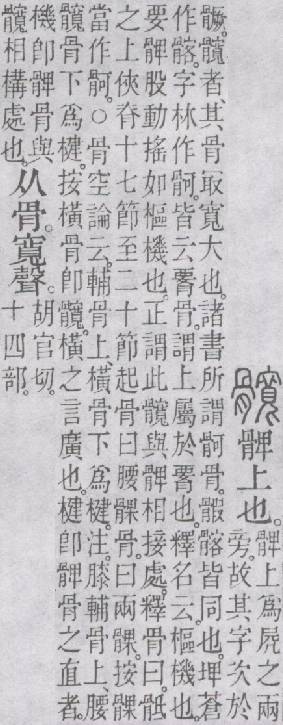 髖髀上也。
髀上爲凥之兩
旁。故其字次於
𩪗。髖者、其骨㝡寬大也。諸書所謂䯊骨。䯛髂皆同也。埤蒼
作髂。字林作䯊。皆云𦥼骨。謂上屬於𦥼也。釋名云。樞機也。
要髀股動搖如樞機也。正謂此髖與髀相接處。釋骨曰。骶
之上俠脊十七節至二十節起骨曰腰髁骨。曰兩髁。按髁
當作䯊。○骨空論云。輔骨上橫骨下爲楗。注。膝輔骨上、腰
髖骨下爲楗。按橫骨卽髖。橫之言廣也。楗卽髀骨之直者。
機卽髀骨與
髖相構處也。
从骨。寬聲。
胡官切。
十四部。